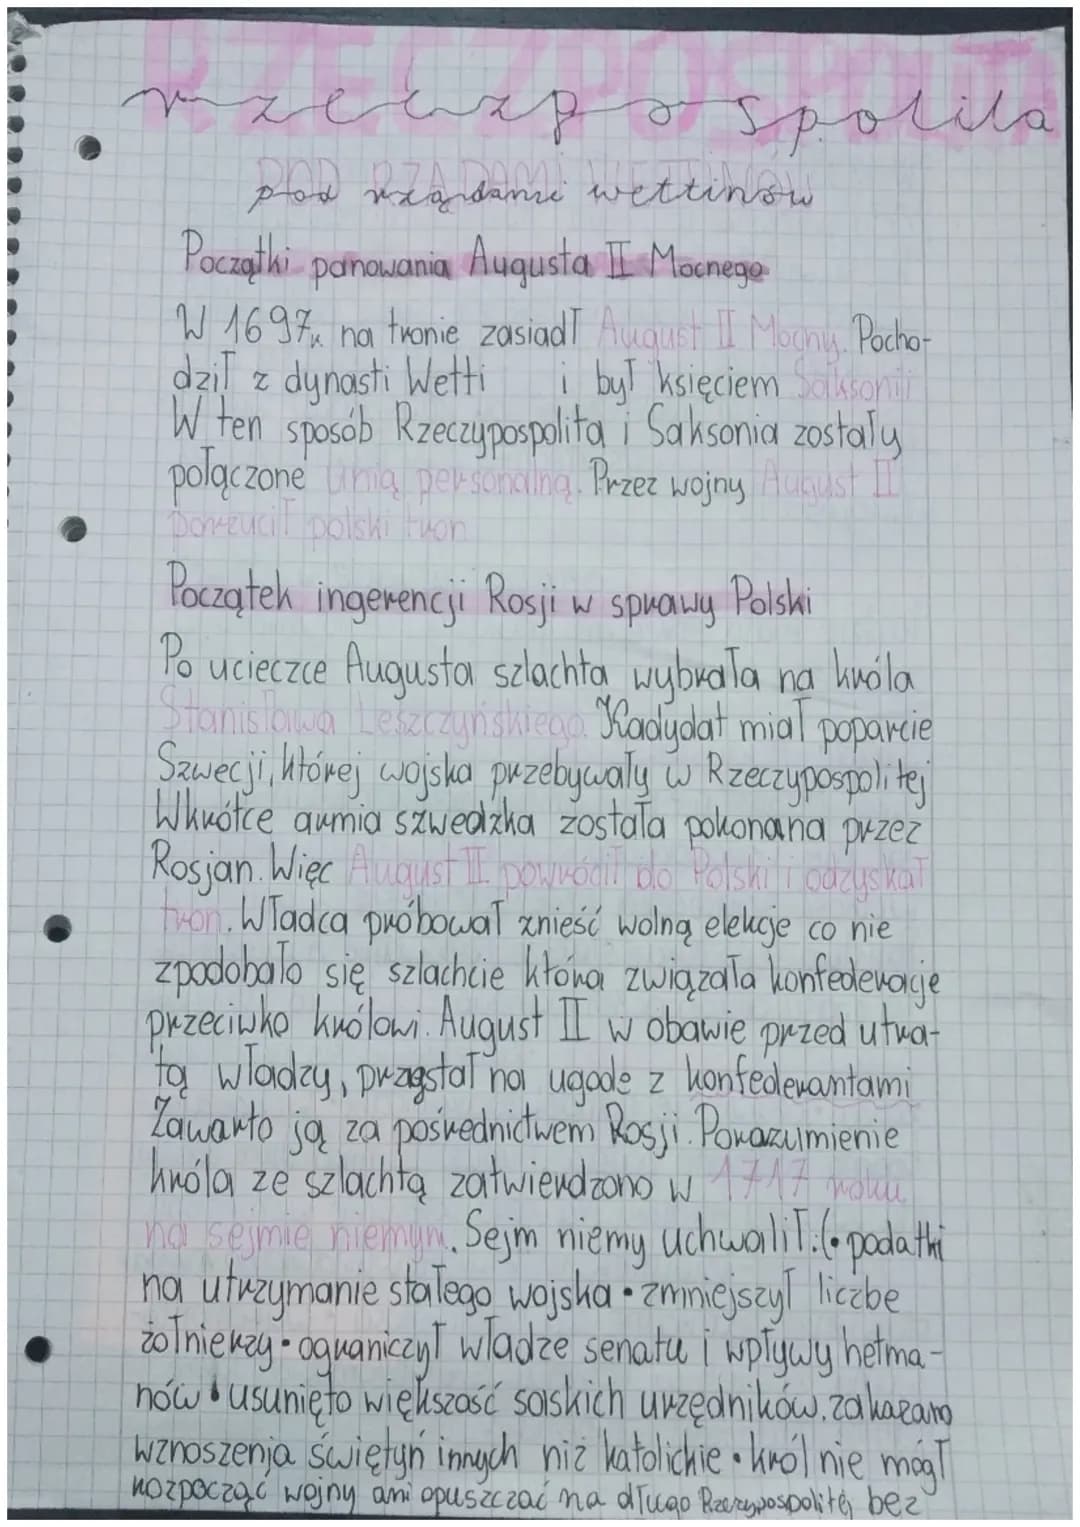 RZECZPOSPOLITA
rzeczpospolita
POD RZĄDAMI WETTINÓW
pod rządami wettinów
Początki panowania Augusta II Mocnego
W 1697r. na tronie zasiadł August II Mocny. Pocho-
dził z dynasti Wetti i był księciem Saksonii
W ten sposób Rzeczypospolita i Saksonia zostały
połączone unią personalną. Przez wojny August II
porzucił polski tron
Początek ingerencji Rosji w sprawy Polski
Po ucieczce Augusta szlachta wybrała na króla
Stanisława Leszczyńskiego. Kadydat miał poparcie
Szwecji, której wojska przebywały w Rzeczypospolitej
Wkrótce armia szwedzka została pokonana przez
Rosjan. Więc August II powrócił do Polski i odzyskał
tron. Władca próbował znieść wolną elekcje co nie
zpodobało się szlachcie która związała konfederacje
przeciwko królowi. August II w obawie przed utra-
tą władzy, przystał na ugode z konfederantami
Zawarto ją za pośrednictwem Rosji. Porazumienie
króla ze szlachtą zatwierdzono w 1717 roku
na sejmie niemym. Sejm niemy uchwalił:(• podatki
na utrzymanie stałego wojska • zmniejszył liczbe
żołnierzy • ograniczył władze senatu i wpływy hetma-
nów • usunięto większość saskich urzędników. zakazano
wznoszenia świętyń innych niż katolickie • król nie mógł
rozpocząć wojny ani opuszczać na długo Rzeczypospolitej bez